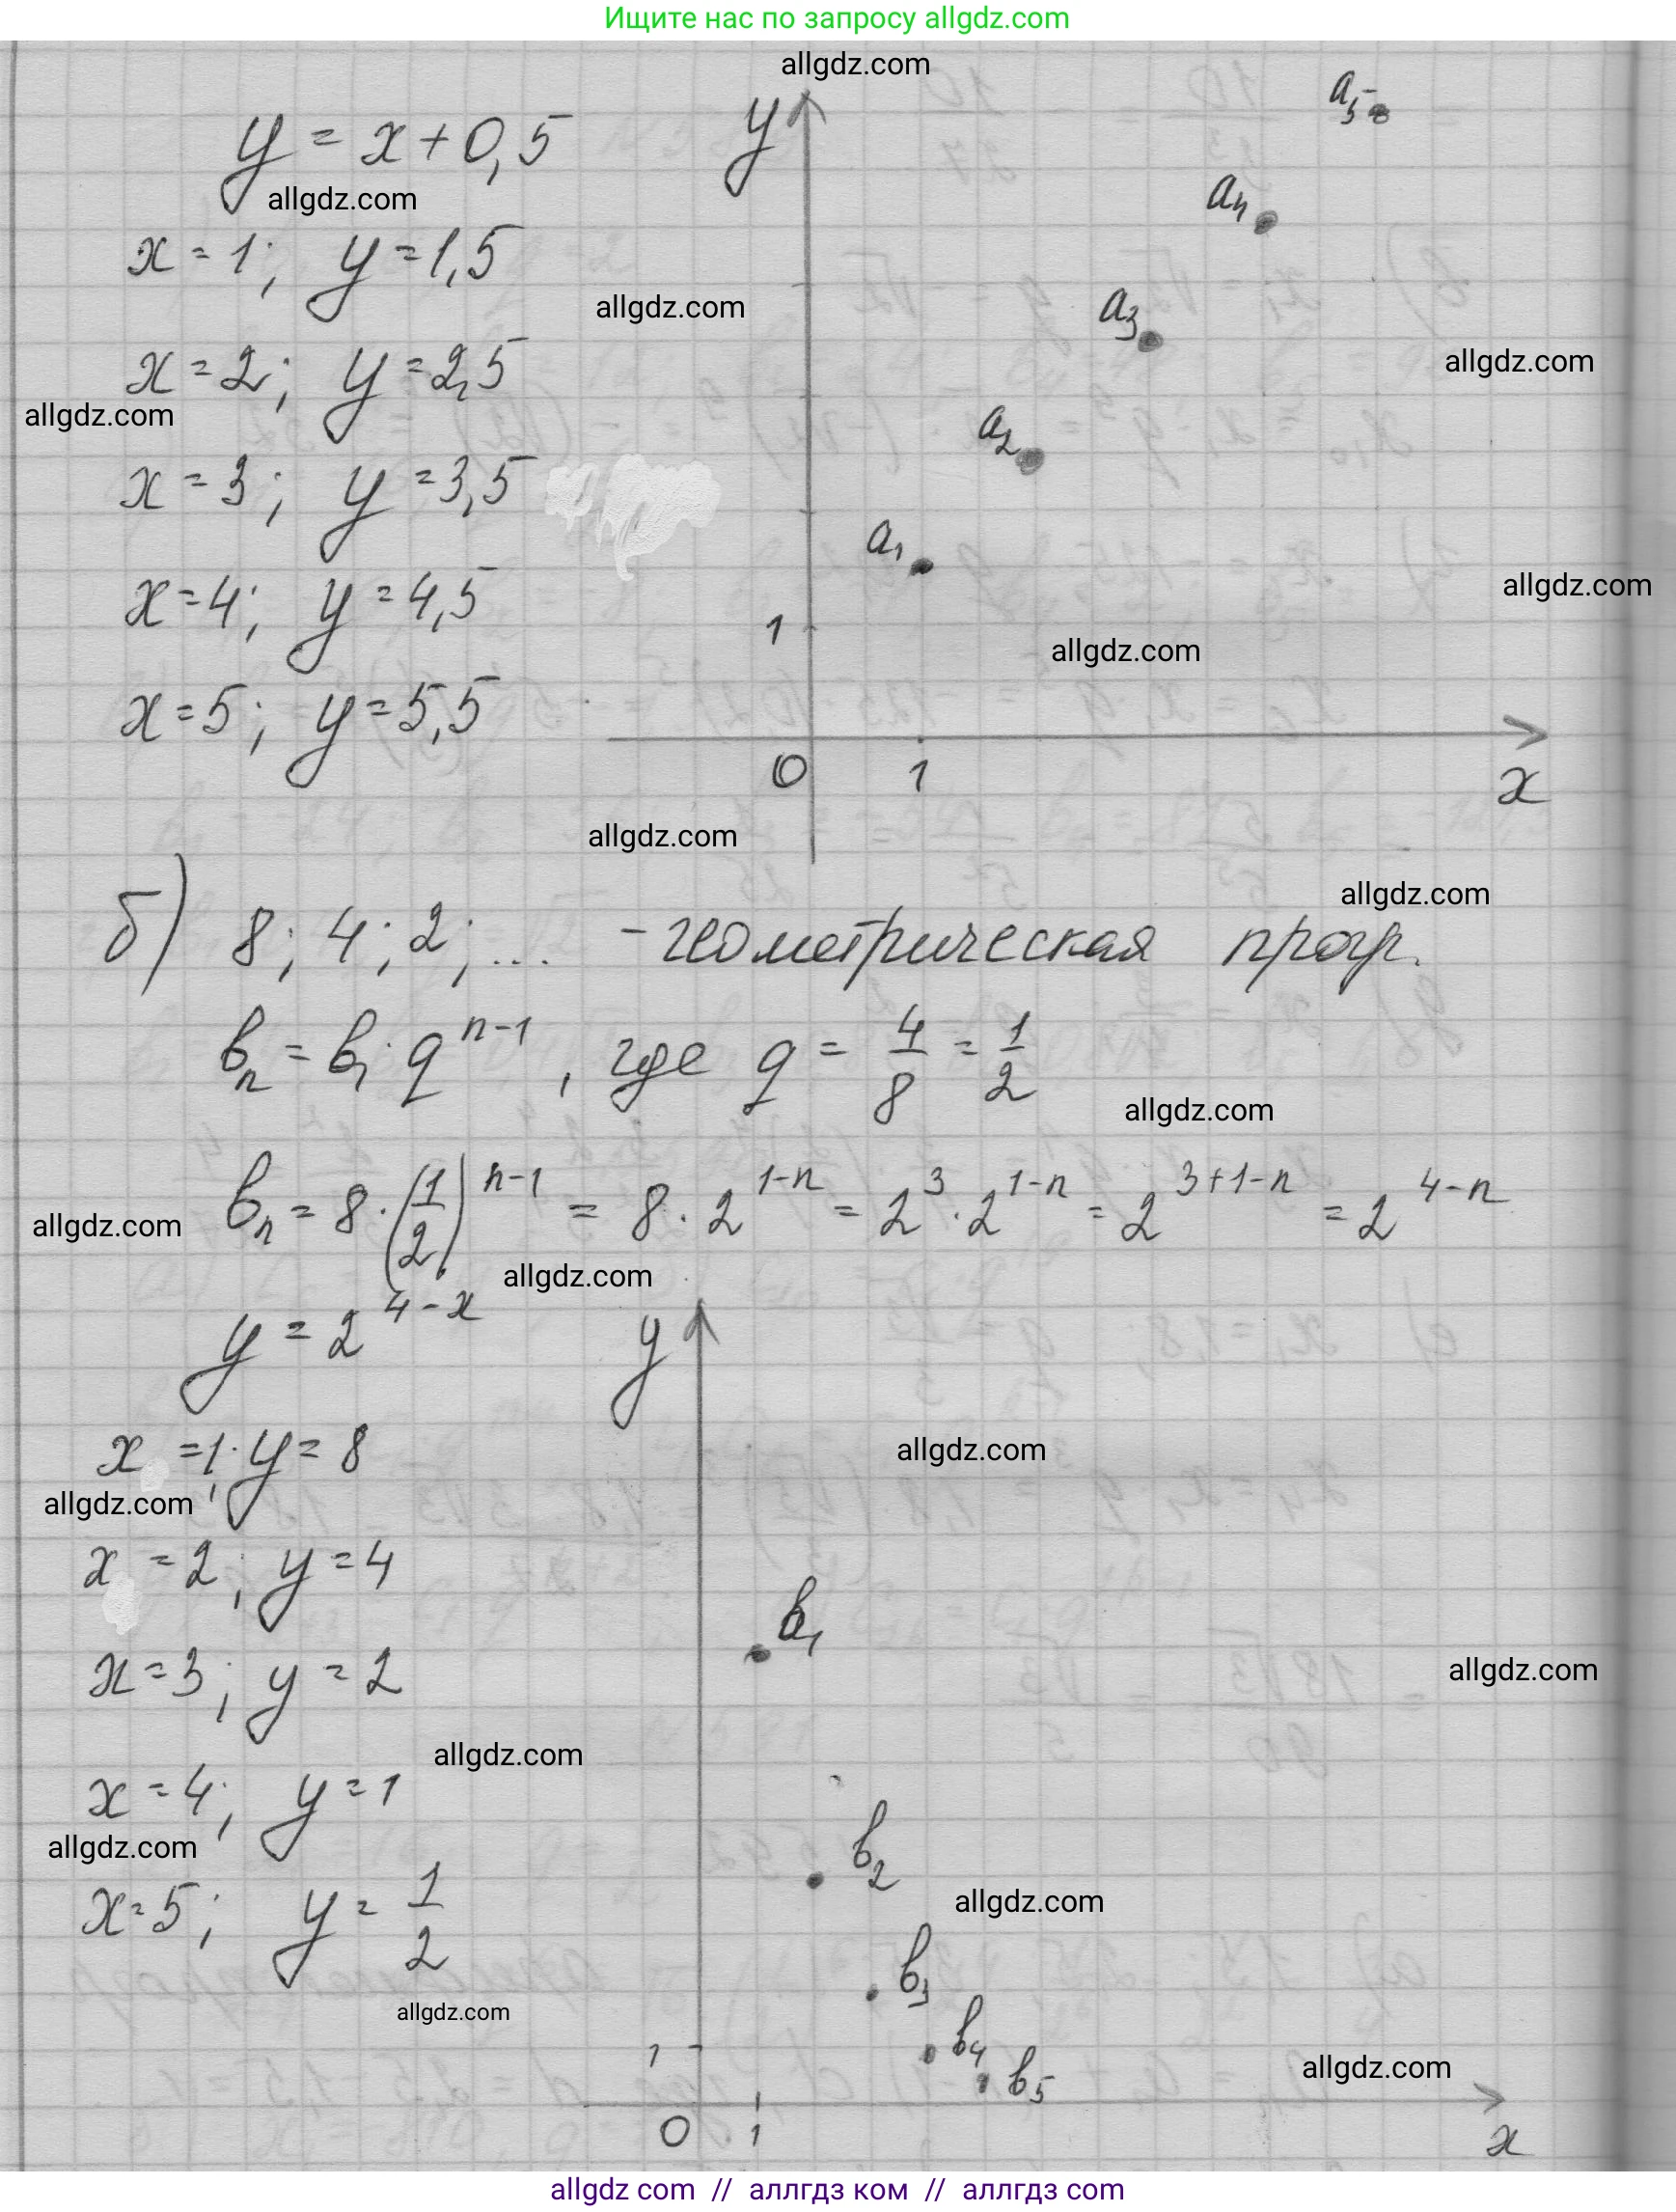 Ищите нас по запросу allgdz.com
allgdz.com
y = x + 0,5
allgdz.com
x = 1; y = 1,5
allgdz.com
x = 2; y = 2,5
allgdz.com
allgdz.com
x = 3; y = 3,5
x = 4; y = 4,5
allgdz.com
x = 5; y = 5,5
y
a₅
a₄
a₃
a₂
a₁
1
allgdz.com
0 1
x
allgdz.com
allgdz.com
б) 8; 4; 2; ... - геометрическая прогр.
bₙ = b₁ · q^(n-1), где q = 4/8 = 1/2
allgdz.com
bₙ = 8 · (1/2)^(n-1) = 8 · 2^(1-n) = 2^3 · 2^(1-n) = 2^(3+1-n) = 2^(4-n)
allgdz.com
allgdz.com
y = 2^(4-x)
x = 1; y = 8
allgdz.com
allgdz.com
x = 2; y = 4
x = 3; y = 2
allgdz.com
allgdz.com
x = 4; y = 1
allgdz.com
x = 5; y = 1/2
allgdz.com
allgdz.com
y
b₁
b₂
b₃
b₄
b₅
1
allgdz.com
0 1
x
allgdz com // аллгдз ком // аллгдз com